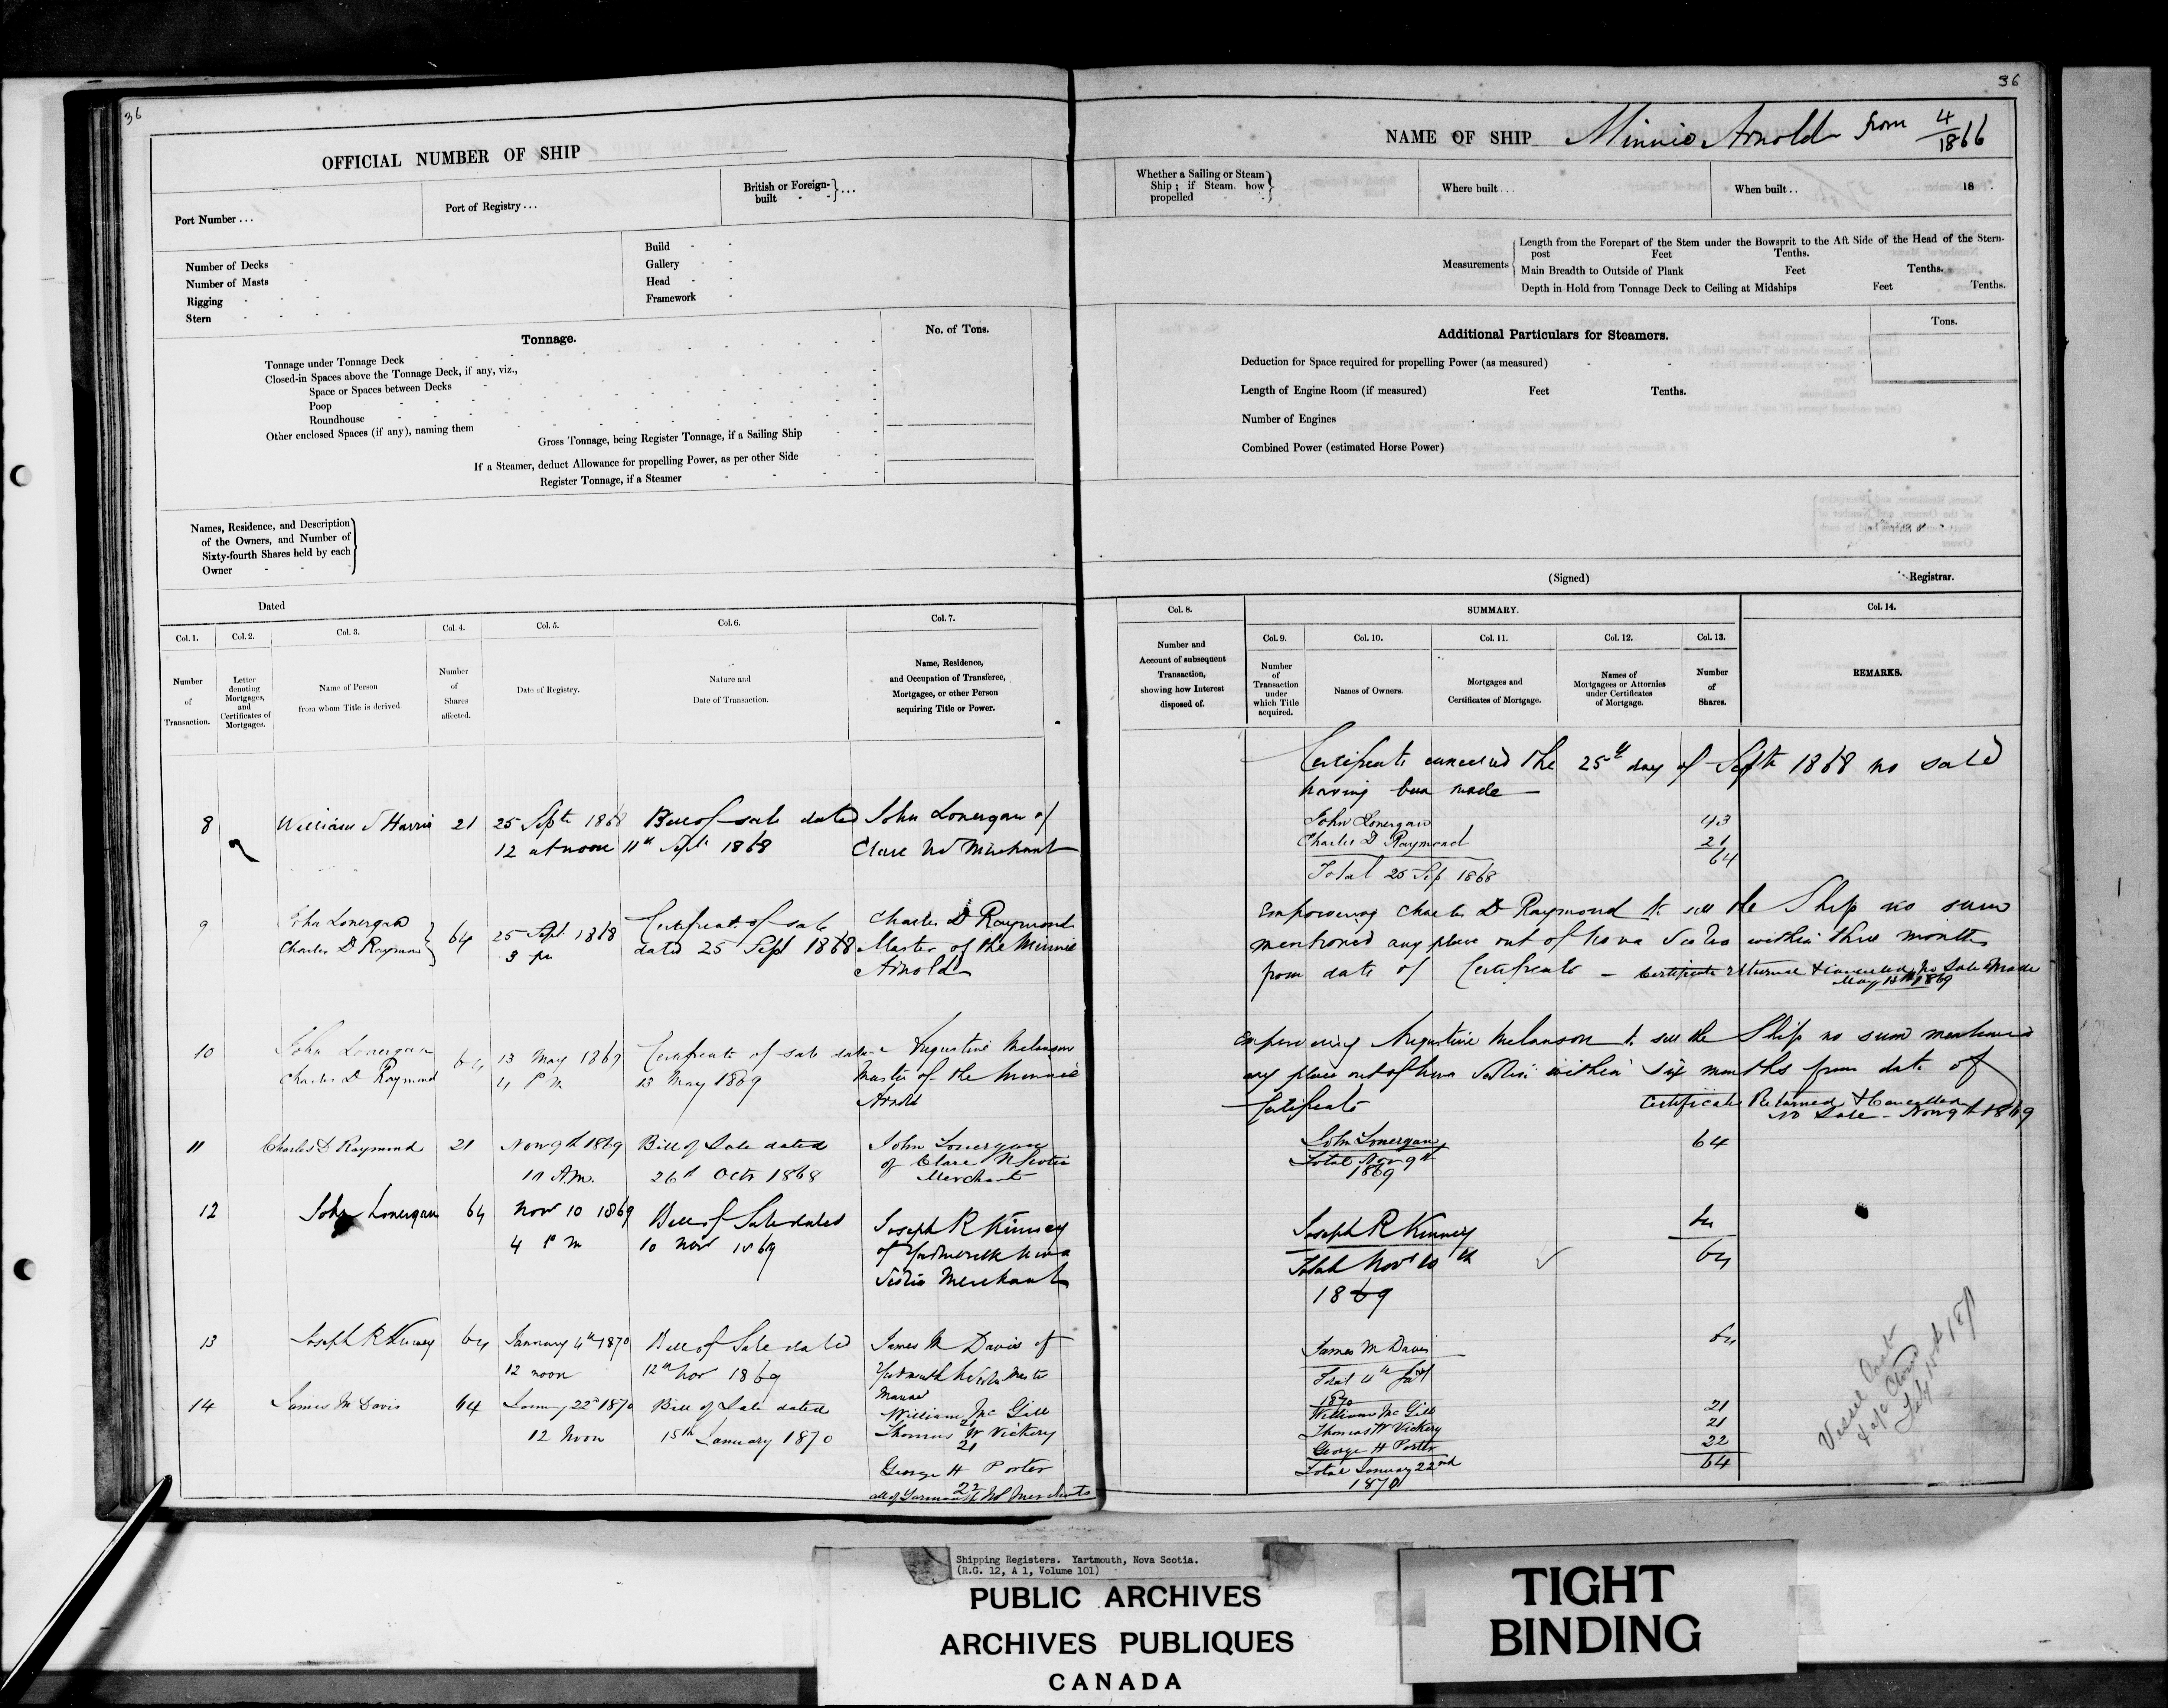 36
OFFICIAL NUMBER OF SHIP
Port Number...
Port of Registry...
British or Foreign-built - - }...
Number of Decks
Number of Masts
Rigging
Stern
Build
Gallery
Head
Framework
Tonnage.
No. of Tons.
Tonnage under Tonnage Deck
Closed-in Spaces above the Tonnage Deck, if any, viz.,
Space or Spaces between Decks
Poop
Roundhouse
Other enclosed Spaces (if any), naming them
Gross Tonnage, being Register Tonnage, if a Sailing Ship
If a Steamer, deduct Allowance for propelling Power, as per other Side
Register Tonnage, if a Steamer
Names, Residence, and Description
of the Owners, and Number of
Sixty-fourth Shares held by each
Owner
Dated
Col. 1.
Number
of
Transaction.
Col. 2.
Letter
denoting
Mortgages,
and
Certificates of
Mortgages.
Col. 3.
Name of Person
from whom Title is derived
Col. 4.
Number
of
Shares
affected.
Col. 5.
Date of Registry.
Col. 6.
Nature and
Date of Transaction.
Col. 7.
Name, Residence,
and Occupation of Transferee,
Mortgagee, or other Person
acquiring Title or Power.
8 William J Harris 21 25 Septr 1868 Bill of sale dated John Lonergan of
12 at noon 11th Sept 1868 Clare NS Merchant
9 John Lonergan 64 25 Sept 1868 Certificate of sale Charles D Raymond
Charles D Raymond 3 pm dated 25 Sept 1868 Master of the Minnie
Arnold
10 John Lonergan 64 13 May 1869 Certificate of sale dated Augustine Melanson
Charles D Raymond 4 PM 13 May 1869 Master of the Minnie
Arnold
11 Charles D Raymond 21 Nov 9th 1869 Bill of Sale dated John Lonergan
A.M. 26th Octr 1868 of Clare N Scotia
Merchant
12 John Lonergan 64 Nov 10 1869 Bill of Sale dated Joseph R Kinney
4 PM 10 Nov 1869 of Yarmouth Nova
Scotia Merchant
13 Joseph R Kinney 64 January 4th 1870 Bill of Sale dated James M Davis of
12 noon 12th Nov 1869 Yarmouth N Scotia Master
Mariner
14 James M Davis 64 January 22d 1870 Bill of Sale dated William Mc Gill
21
12 Noon 15th January 1870 Thomas W Vickery
21
George H Porter
22
all of Yarmouth NS Merchants
36
NAME OF SHIP Minnie Arnold from 4/1866
Whether a Sailing or Steam
Ship; if Steam, how
propelled
Where built...
When built.. 18 .
Measurements
Length from the Forepart of the Stem under the Bowsprit to the Aft Side of the Head of the Stern-
post Feet Tenths.
Main Breadth to Outside of Plank Feet Tenths.
Depth in Hold from Tonnage Deck to Ceiling at Midships Feet Tenths.
Additional Particulars for Steamers.
Tons.
Deduction for Space required for propelling Power (as measured)
Length of Engine Room (if measured) Feet Tenths.
Number of Engines
Combined Power (estimated Horse Power)
(Signed) Registrar.
Col. 8.
Number and
Account of subsequent
Transaction,
showing how Interest
disposed of.
SUMMARY.
Col. 9.
Number
of
Transaction
under
which Title
acquired.
Col. 10.
Names of Owners.
Col. 11.
Mortgages and
Certificates of Mortgage.
Col. 12.
Names of
Mortgagees or Attornies
under Certificates
of Mortgage.
Col. 13.
Number
of
Shares.
Col. 14.
REMARKS.
Certificate cancelled the 25th day of Septr 1868 no sale
having been made
John Lonergan 43
Charles D Raymond 21
64
Total 25 Sep 1868
Empowering Charles D Raymond to sell the Ship no sum
mentioned any place out of Nova Scotia within three months
from date of Certificate - Certificate returned & cancelled no Sale Made
May 13th 1869
Empowering Augustine Melanson to sell the Ship no sum mentioned
any place out of Nova Scotia within six months from date of
Certificate Certificate Returned & Cancelled
No Sale - Nov 9th 1869
John Lonergan 64
Total Nov 9th
1869
Joseph R Kinney 64
Total Nov 10th 64
1869
James M Davis 64
Total 4th Jany
1870
William Mc Gill 21
Thomas W Vickery 21
George H Porter 22
Total January 22nd 64
1870
Vessel Lost
Closed
Shipping Registers. Yartmouth, Nova Scotia.
(R.G. 12, A 1, Volume 101)
PUBLIC ARCHIVES
ARCHIVES PUBLIQUES
CANADA
TIGHT
BINDING